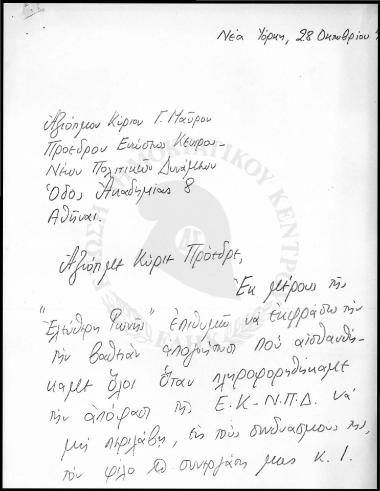 Νέα Υόρκη, 28 Οκτωβρίου
Ἀξιότιμον Κύριον Γ. Μαῦρον
Πρόεδρον Ἑνώσεως Κέντρου-
Νέων Πολιτικῶν Δυνάμεων
Ὁδός Ἀκαδημίας 8
Ἀθῆναι.
Ἀξιότιμε Κύριε Πρόεδρε,
Ἐκ μέρους τῆς
"Ἐλεύθερη Φωνή" ἐπιθυμῶ νά ἐκφράσω τήν
τήν βαθειάν ἀπογοήτευση πού αἰσθανθή-
καμε ὅλοι ὅταν πληροφορηθήκαμε
τήν ἀπόφαση τῆς Ε.Κ-Ν.Π.Δ. νά
μή περιλάβη, εἰς τούς συνδυασμούς της,
τόν φίλο συνεργάτη μας κ. Ι.
ΕΝΩΣΗ ΔΗΜΟΚΡΑΤΙΚΟΥ ΚΕΝΤΡΟΥ
ΕΔΗΚ